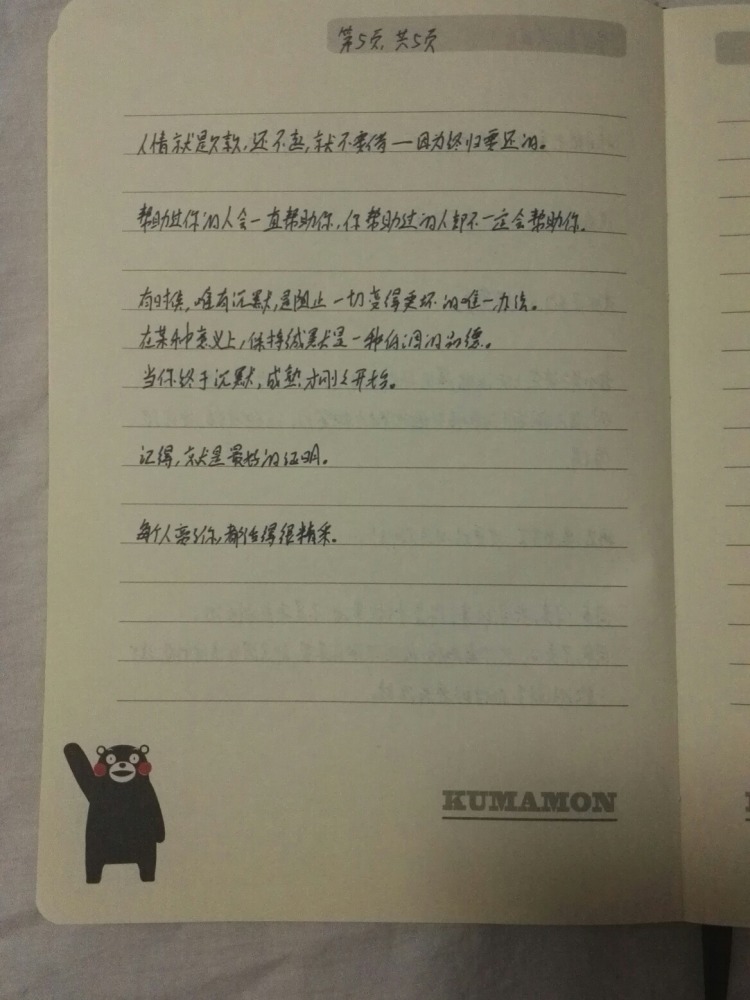 第5页,共5页
人情就是欠款,还不起,就不要借—因为终归要还的。
帮助过你的人会一直帮助你,你帮助过的人却不一定会帮助你。
有时候,唯有沉默,是阻止一切变得更坏的唯一办法。
在某种意义上,保持缄默是一种低调的品德。
当你终于沉默,成熟才刚刚开始。
记得,就是最好的证明。
每个人离了你,都活得很精采。
KUMAMON